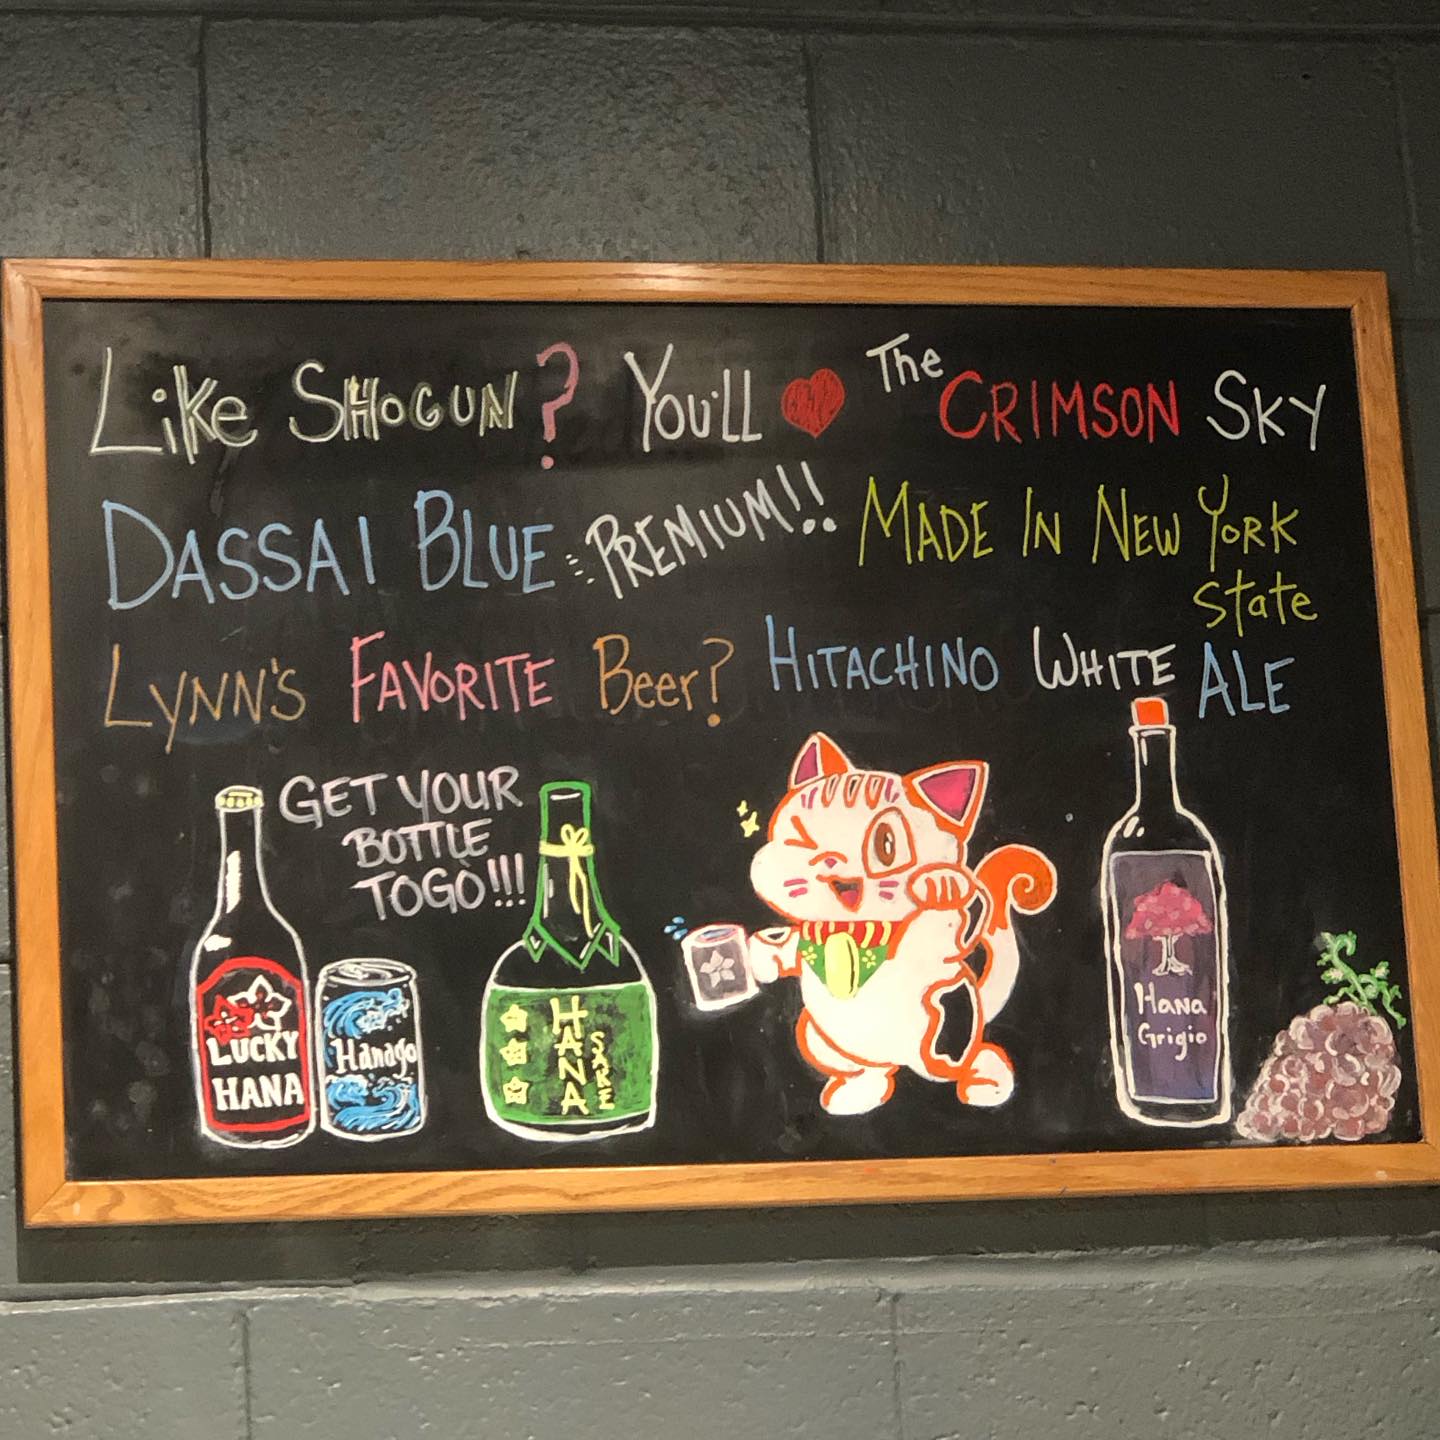 Like SHOGUN? You'LL ♥ The CRIMSON SKY
DASSAI BLUE PREMIUM!! MADE IN NEW YORK
State
LYNN'S FAVORITE Beer? HITACHINO WHITE ALE
GET YOUR
BOTTLE
TOGO!!!
LUCKY
HANA
Hanago
HANA
SAKE
Hana
Grigio